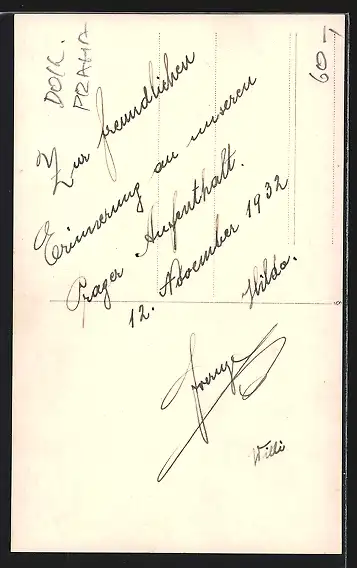 DOK.
PRAHA
60-
Zur freundlichen
Erinnerung an unseren
Prager Aufenthalt.
12. November 1932
Hilda.
Willi